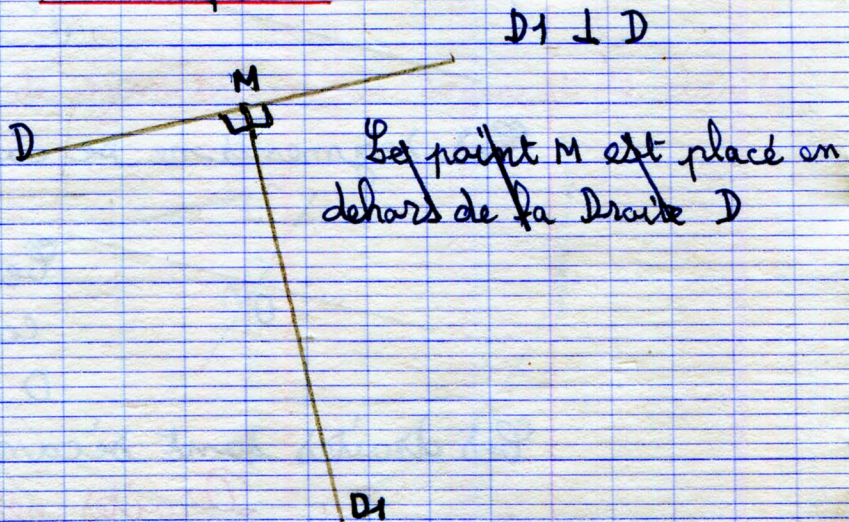 D1 ⊥ D
M
D
Le point M est placé en
dehors de la Droite D
D1